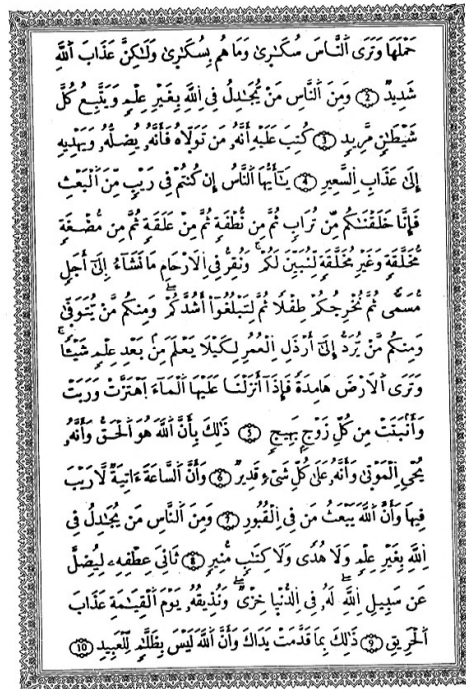 حَمْلَهَا وَتَرَى اَلنَّاسَ سُكَٰرٜىٰ وَمَا هُم بِسُكَٰرٜىٰ وَلَٰكِنَّ عَذَابَ اَللَّهِ
شَدِيدٌ (2) وَمِنَ اَلنَّاسِ مَنْ يُجَٰدِلُ فِى اِللَّهِ بِغَيْرِ عِلْمٍ وَيَتَّبِعُ كُلَّ
شَيْطَٰنٍ مَّرِيدٍ (3) كُتِبَ عَلَيْهِ أَنَّهُۥ مَن تَوَلَّاهُ فَأَنَّهُۥ يُضِلُّهُۥ وَيَهْدِيهِ
إِلَىٰ عَذَابِ اِلسَّعِيرِ (4) يَٰٓأَيُّهَا اَلنَّاسُ إِن كُنتُمْ فِى رَيْبٍ مِّنَ اَلْبَعْثِ
فَإِنَّا خَلَقْنَٰكُم مِّن تُرَابٍ ثُمَّ مِن نُّطْفَةٍ ثُمَّ مِنْ عَلَقَةٍ ثُمَّ مِن مُّضْغَةٍ
مُّخَلَّقَةٍ وَغَيْرِ مُخَلَّقَةٍ لِّنُبَيِّنَ لَكُمْ وَنُقِرُّ فِى اِلْأَرْحَامِ مَا نَشَآءُ إِلَىٰٓ أَجَلٍ
مُّسَمًّى ثُمَّ نُخْرِجُكُمْ طِفْلًا ثُمَّ لِتَبْلُغُوٓاْ أَشُدَّكُمْ وَمِنكُم مَّنْ يُتَوَفَّىٰ
وَمِنكُم مَّنْ يُرَدُّ إِلَىٰٓ أَرْذَلِ اِلْعُمُرِ لِكَيْلَا يَعْلَمَ مِنۢ بَعْدِ عِلْمٍ شَيْـًٔا
وَتَرَى اَلْأَرْضَ هَامِدَةً فَإِذَآ أَنزَلْنَا عَلَيْهَا اَلْمَآءَ اَهْتَزَّتْ وَرَبَتْ
وَأَنۢبَتَتْ مِن كُلِّ زَوْجٍۭ بَهِيجٍ (5) ذَٰلِكَ بِأَنَّ اَللَّهَ هُوَ اَلْحَقُّ وَأَنَّهُۥ
يُحْىِ اِلْمَوْتَىٰ وَأَنَّهُۥ عَلَىٰ كُلِّ شَىْءٍ قَدِيرٌ (6) وَأَنَّ اَلسَّاعَةَ ءَاتِيَةٌ لَّا رَيْبَ
فِيهَا وَأَنَّ اَللَّهَ يَبْعَثُ مَن فِى اِلْقُبُورِ (7) وَمِنَ اَلنَّاسِ مَنْ يُجَٰدِلُ فِى
اِللَّهِ بِغَيْرِ عِلْمٍ وَلَا هُدًى وَلَا كِتَٰبٍ مُّنِيرٍ (8) ثَانِىَ عِطْفِهِۦ لِيُضِلَّ
عَن سَبِيلِ اِللَّهِ لَهُۥ فِى اِلدُّنْيَا خِزْىٌ وَنُذِيقُهُۥ يَوْمَ اَلْقِيَٰمَةِ عَذَابَ
اَلْحَرِيقِ (9) ذَٰلِكَ بِمَا قَدَّمَتْ يَدَاكَ وَأَنَّ اَللَّهَ لَيْسَ بِظَلَّٰمٍ لِّلْعَبِيدِ (10)